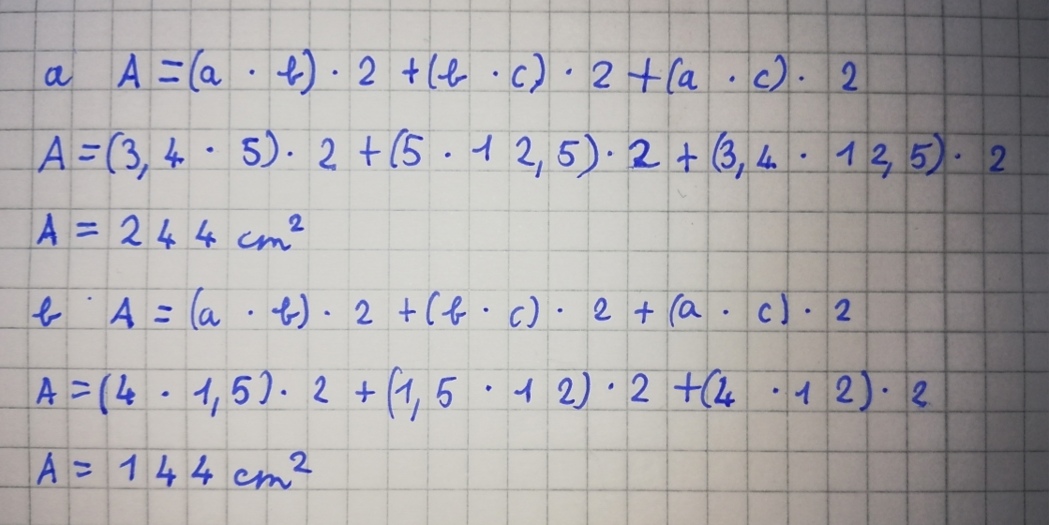 a A = (a · b) · 2 + (b · c) · 2 + (a · c) · 2
A = (3,4 · 5) · 2 + (5 · 12,5) · 2 + (3,4 · 12,5) · 2
A = 244 cm²
b A = (a · b) · 2 + (b · c) · 2 + (a · c) · 2
A = (4 · 1,5) · 2 + (1,5 · 12) · 2 + (4 · 12) · 2
A = 144 cm²